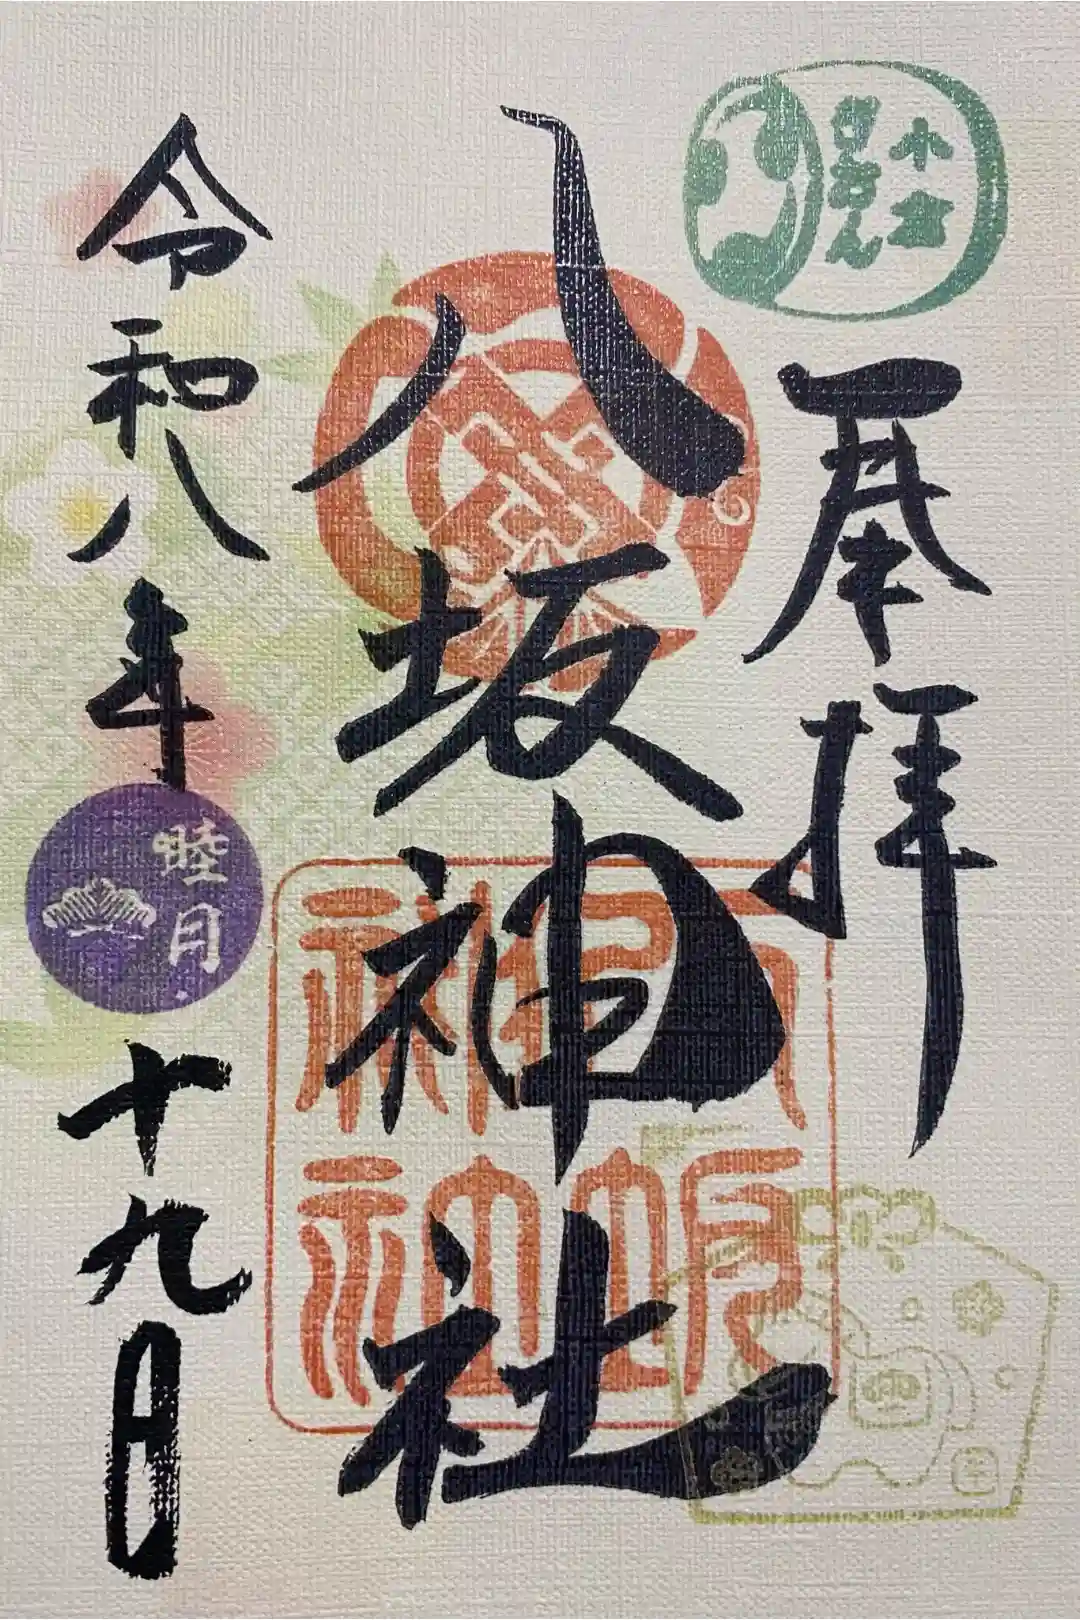 奉拝
八坂神社
八坂神社
令和八年
睦月
十九日